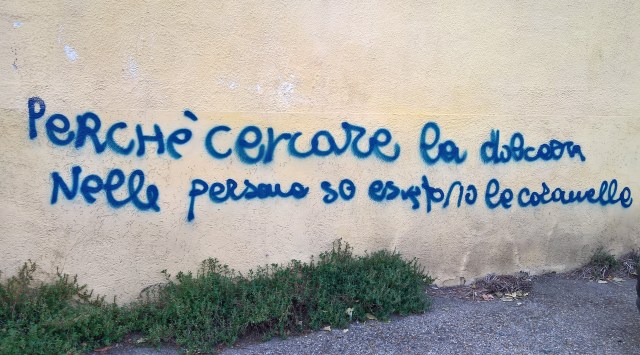 PeRCHè ceRcaRe la dolcezza
Nelle persone se esistono le caramelle